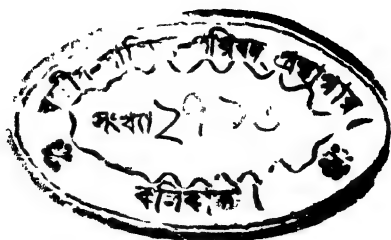 বঙ্গীয়-সাহিত্য-পরিষদ গ্রন্থাগার
সংখ্যা
কলিকাতা।